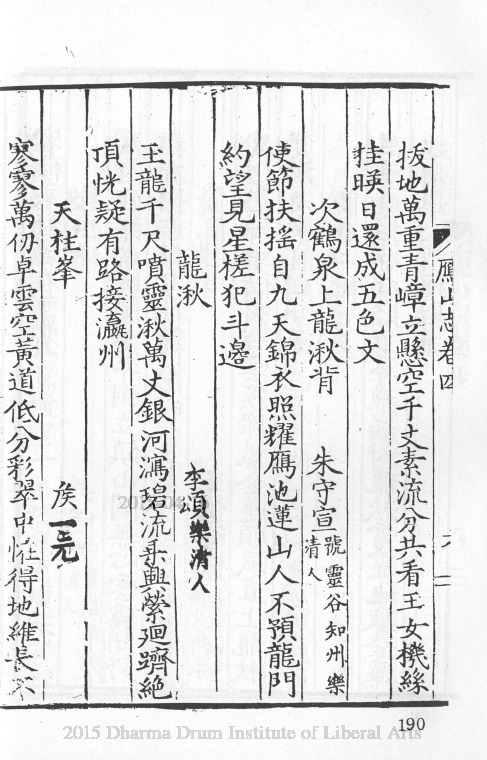 鴈山志卷四
拔地萬重青嶂立懸空千丈素流分共看玉女機絲
挂暎日還成五色文
次鶴泉上龍湫背 朱守宣 號靈谷知州樂清人
使節扶搖自九天錦衣照耀鴈池蓮山人不預龍門
約望見星槎犯斗邊
龍湫 李項樂清人
玉龍千尺噴靈湫萬丈銀河瀉碧流乘興縈迴躋絶
頂恍疑有路接瀛州
天柱峯 侯一元
寥寥萬仞卓雲空黃道低分彩翠中惟得地維長不
190
2015 Dharma Drum Institute of Liberal Arts